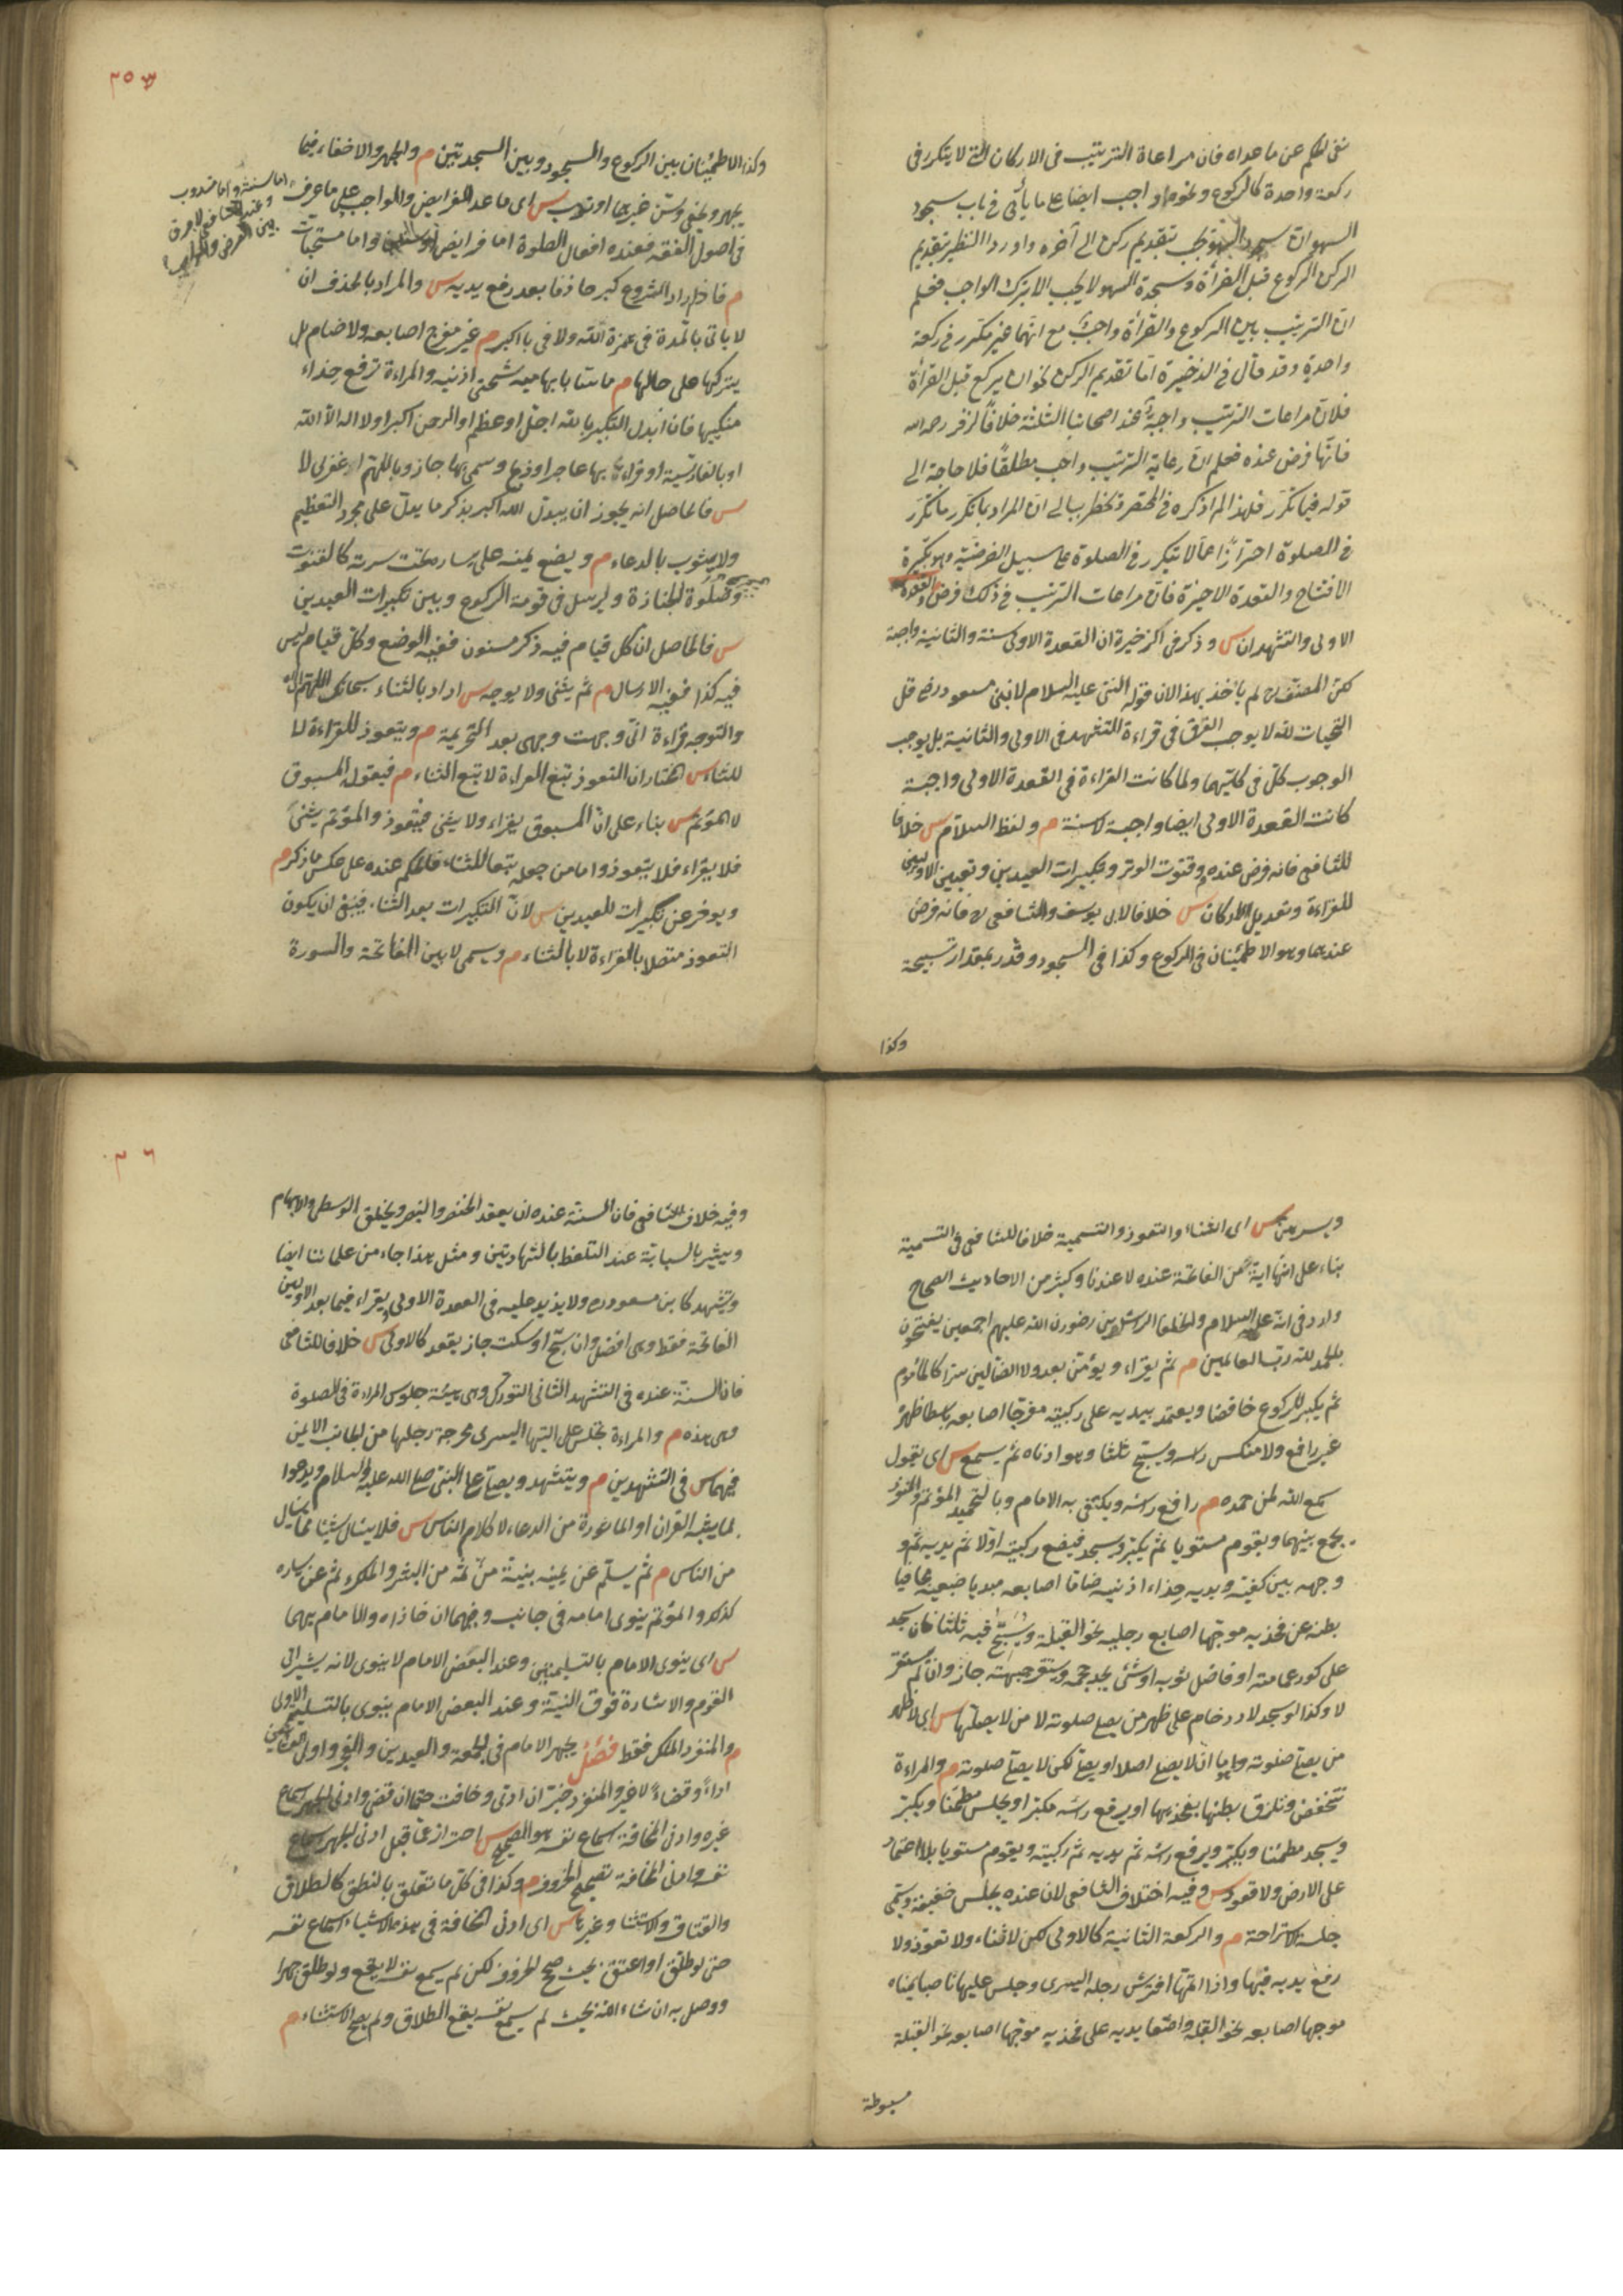 نفى الحكم عن ما عداه فان مراعاة الترتيب فى الاركان التى لا يتكرر فى
ركعة واحدة كالركوع ونحوه واجب ايضا على ما يأتى فى باب سجود
السهو ان سجود السهو يجب بتقديم ركن الى آخره واوردا النظير بتقديم
الركن الركوع قبل القرأة وسجدة السهو لا يجب الا بترك الواجب فعلم
انّ الترتيب بين الركوع والقرأة واجبٌ مع انّهما غير مكرّر فى ركعة
واحدة وقد قال فى الذخيرة امّا تقديم الركن نحو ان يركع قبل القرأة
فلانّ مراعات الترتيب واجبةٌ عند اصحابنا الثلثة خلافاً لزفر رحمه الله
فانّها فرض عنده فعلم ان رعاية الترتيب واجب مطلقاً فلا حاجة الى
قوله فيما تكرّر فلهذا لم اذكره فى المختصر ويخطر ببالى انّ المراد بما تكرر ما تكرّر
فى الصلوة احترازًا عمّا لا يتكرر فى الصلوة على سبيل الفرضيّة وهو تكبيرة
الافتتاح والقعدة الاخيرة فانّ مراعات الترتيب فى ذلك فرض والقعدة
الاولى والتشهد ان س وذكر فى الذخيرة ان القعدة الاولى سنة والثانية واجبة
لكن المصنّف لم يأخذ بهذا لان قوله النبى عليه السلام لابن مسعود رض قل
التحيات لله لا يوجب الفرق فى قراءة التشهد فى الاولى والثانية بل يوجب
الوجوب كلّ فى كليتهما ولما كانت القراءة فى القعدة الاولى واجبة
كانت القعدة الاولى ايضا واجبة لا سنة م ولفظ السلام س خلافا
للشافعى فانه فرض عنده م وقنوت الوتر وتكبيرات العيدين وتعيين الاوليين
للقراءة وتعديل الاركان س خلافا لابى يوسف والشافعى فانه فرض
عندهما وهو الاطمئنان فى الركوع وكذا فى السجود وقدّر بمقدار تسبيحة
وكذا
٣٥
وكذا الاطمئنان بين الركوع والسجود وبين السجدتين م والجهر والاخفاء فيما
يجهر ويخفى وسنّ غيرهما او ندب س اى ما عدا الفرايض والواجب على ما عرف
اما سنة واما مندوب
وعند الشافعى لا فرق
بين الفرض والواجب
فى اصول الفقه فعنده افعال الصلوة اما فرايض واما مستحبات
م فاذا اراد الشروع كبر حاذفا بعد رفع يديه س والمراد بالحذف ان
لا يأتى بالمدة فى همزة الله ولا فى باء اكبر م غير مفرج اصابعه ولا ضام بل
يتركها على حالها م ماسّا بابهاميه شحمتى اذنيه والمراءة ترفع حذاء
منكبيها فان ابدل التكبير بالله اجلّ او اعظم او الرحمن اكبر او لا اله الا الله
او بالفارسية او قراءة بها عاجزا او ذبح وسمى بها جاز وباللهم اغفرلى لا
س فالحاصل انه يجوز ان يبدل الله اكبر بذكر ما يدل على مجرد التعظيم
ولا يشوب بالدعاء م ويضع يمينه على يساره تحت سرته كالقنوت
وصلوة الجنازة ويرسل فى قومة الركوع وبين تكبيرات العيدين
س فالحاصل ان كل قيام فيه ذكر مسنون ففيه الوضع وكلّ قيام ليس
فيه كذا ففيه الارسال م ثم يثنى ولا يوجه س اراد بالثناء سبحانك اللهم الخ
والتوجه قراءة انّى وجهت وجهى بعد التحريمة م ويتعوذ للقراءة لا
للثناء س المختار ان التعوذ تبع القراءة لا تبع الثناء م فيقوله المسبوق
لا المؤتم س بناء على انّ المسبوق يقراء ولا يثنى فيتعوذ والمؤتم يثنى
فلا يقراء فلا يتعوذ واما من جعله تبعا للثناء فالحكم عنده على عكس ما ذكر م
ويؤخر عن تكبيرات العيدين س لانّ التكبيرات بعد الثناء فينبغى ان يكون
التعوذ متصلا بالقراءة لا بالثناء م ويسمى لا بين الفاتحة والسورة
ويسرهن س اى الثناء والتعوذ والتسمية خلافا للشافعى فى التسمية
بناء على انها اية من الفاتحة عنده لا عندنا وكثير من الاحاديث الصحاح
وارد فى انه عليه السلام والخلفا الراشدين رضوان الله عليهم اجمعين يفتتحون
بالحمد لله رب العالمين م ثم يقراء ويؤمّن بعد ولا الضالين سرا كالمأموم
ثم يكبر للركوع خافضا ويعتمد بيديه على ركبتيه مفرّجا اصابعه باسطا ظهره
غير رافع ولا منكس راسه ويسبّح ثلثا وهو ادناه ثم يسمع س اى يقول
سمع الله لمن حمده م رافع راسه ويكتفى به الامام وبالتحميد المؤتم والمنفرد
يجمع بينهما ويقوم مستويا ثم يكبّر ويسجد فيضع ركبتيه اولا ثم يديه ثم
وجهه بين كفيه ويديه حذاء اذنيه ضاما اصابعه مبديا ضبعيه مجافيا
بطنه عن فخذيه موجّها اصابع رجليه نحو القبلة ويُسَبِّح فيه ثلثا فان سجد
على كور عمامته او فاضل ثوبه او شئ يجد حجمه ويستقر جبهته جاز وان لم يستقر
لا وكذا لو سجد للزحام على ظهر من يصلى صلوته لا من لا يصلّيها س اى لا ظهر
من يصلى صلوته وامّا ان لا يصلى اصلا او يصلى لكن لا يصلى صلوته م والمراءة
تنخفض وتلزق بطنها بفخذيها او يرفع راسه مكبّرا ويجلس مطمئنا ويكبّر
ويسجد مطمئنا ويكبّر ويرفع راسه ثم يديه ثم ركبتيه ويقوم مستويا بلا اعتماد
على الارض ولا قعود س وفيه اختلاف الشافعى لان عنده يجلس خفيفة ويسمّى
جلسة الاستراحة م والركعة الثانية كالاولى لكن لا ثناء ولا تعوذ ولا
رفع يديه فيها واذا اتمّها افترش رجله اليسرى وجلس عليها ناصبا يمناه
موجها اصابعه نحو القبلة واضعا يديه على فخذيه موجّها اصابعه نحو القبلة
مبسوطة
٣٦
وفيه خلاف الشافعى فان السنة عنده ان يعقد الخنصر والبنصر ويحلق الوسطى والابهام
ويشير بالسبابة عند التلفظ بالشهادتين ومثل هذا جاء من علمائنا ايضا
ويتشهد كابن مسعود رض ولا يزيد عليه فى القعدة الاولى ويقراء فيما بعد الاوليين
الفاتحة فقط وهى افضل وان سبّح او سكت جاز يقعد كالاولى س خلافا للشافعى
فان السنة عنده فى التشهد الثانى التورك وهى هيئة جلوس المراءة فى الصلوة
وهى هذه م والمراءة تجلس على اليتها اليسرى مخرجة رجلها من الجانب الايمن
فيهما س فى التشهدين م ويتشهد ويصلى على النبى صلى الله عليه والسلام ويدعوا
بما يشبه القران او الماثورة من الدعاء لا كلام الناس س فلا يسئل شيئا مما يسال
من الناس م ثم يسلّم عن يمينه بنيّة من ثمّه من البشر والملك ثم عن يساره
كذلك والمؤتم ينوى امامه فى جانبه وفيهما ان حاذاه والامام بهما
س اى ينوى الامام بالتسليمتين وعند البعض الامام لا ينوى لانه يشير الى
القوم والاشارة فوق النيّة وعند البعض الامام ينوى بالتسليمة الاولى
م والمنفرد الملك فقط فصل يجهر الامام فى الجمعة والعيدين والفجر واولى العشائين
اداءً وقضاءً لا غير والمنفرد خيّر ان ادّى وخافت حتما ان قضى وادنى الجهر اسماع
غيره وادنى المخافتة اسماع نفسه هو الصحيح س احتراز عمّا قيل ادنى الجهر اسماع
نفسه وادنى المخافتة تصحيح الحروف م وكذا فى كلّ ما تعلق بالنطق كالطلاق
والعتاق والاستثنا وغيرها س اى ادنى المخافتة فى هذه الاشياء اسماع نفسه
حتى لو طلّق او اعتق بحيث صحح الحروف لكن لم يسمع نفسه لا يقع ولو طلّق جهرا
ووصل به ان شاء الله بحيث لم يسمع نفسه يقع الطلاق ولم يصح الاستثناء م